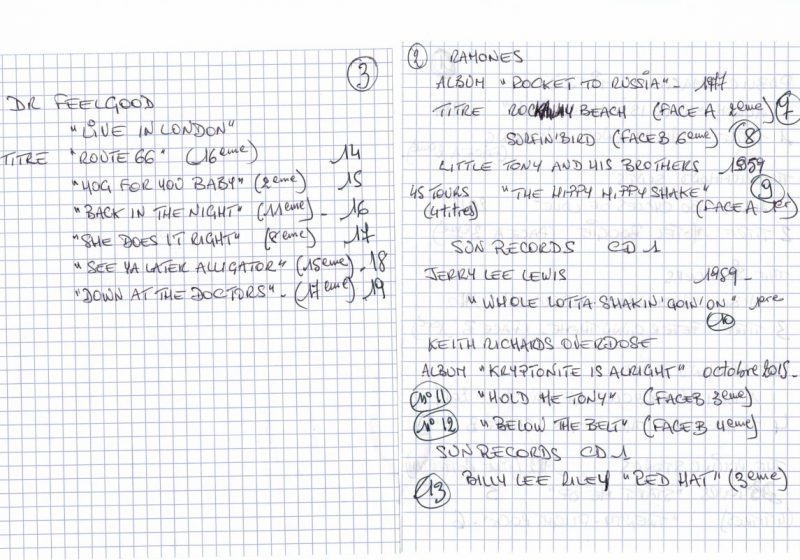 3
DR FEELGOOD
"LIVE IN LONDON"
TITRE "ROUTE 66" (16eme) 14
"HOG FOR YOU BABY" (2eme) 15
"BACK IN THE NIGHT" (11eme) - 16
"SHE DOES IT RIGHT" (8eme) 17
"SEE YA LATER ALLIGATOR" (15eme) - 18
"DOWN AT THE DOCTORS" - (17eme) 19
2 RAMONES
ALBUM "ROCKET TO RUSSIA" - 1977
TITRE ROCKAWAY BEACH (FACE A 2eme) 7
SURFIN'BIRD (FACE B 6eme) 8
LITTLE TONY AND HIS BROTHERS 1959
45 TOURS "THE HIPPY HIPPY SHAKE" 9
(4 titres) (FACE A 1er)
SUN RECORDS CD 1
JERRY LEE LEWIS 1959 -
"WHOLE LOTTA SHAKIN' GOIN' ON" 1ere
10
KEITH RICHARDS OVERDOSE
ALBUM "KRYPTONITE IS ALRIGHT" octobre 2015 -
N° 11 "HOLD ME TONY" (FACE B 3eme)
N° 12 "BELOW THE BELT" (FACE B 4eme)
SUN RECORDS CD 1
13 BILLY LEE RILEY "RED HAT" (3eme)